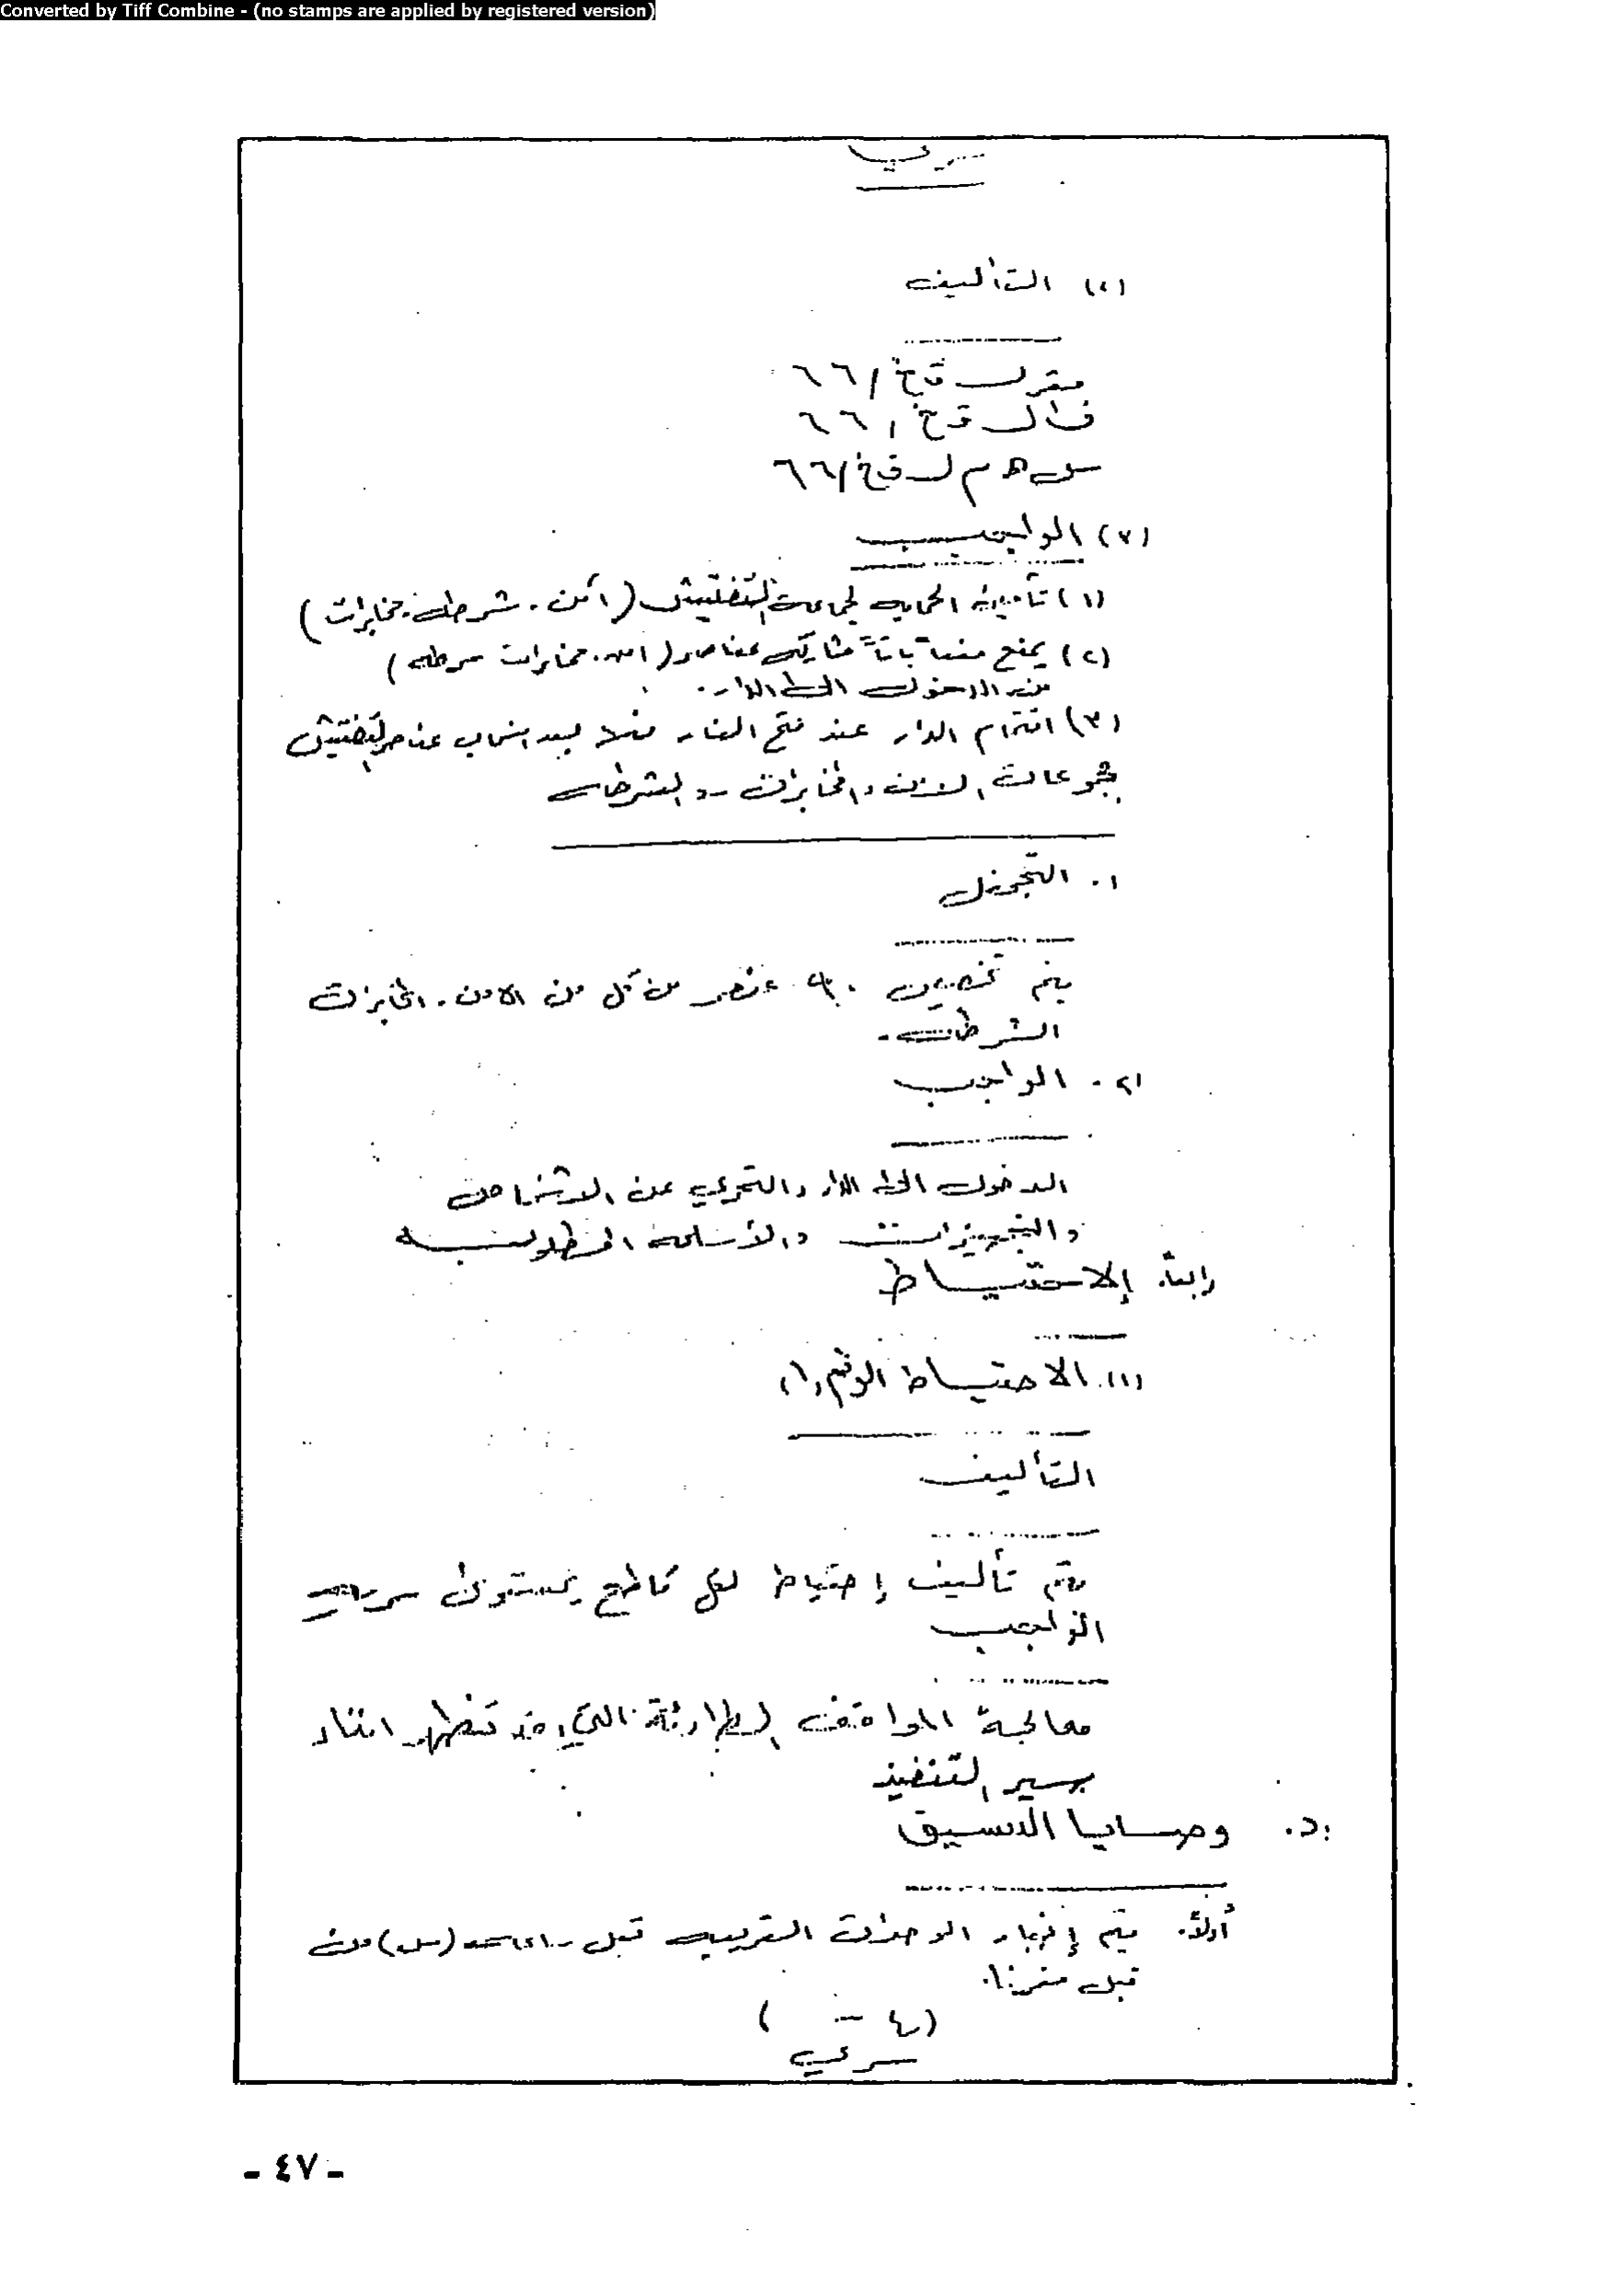 Converted by Tiff Combine - (no stamps are applied by registered version)
سري
التأليف
مقر ل ق خ / ٦٦
ف ل ق خ / ٦٦
م ل ق خ / ٦٦
الواجب
(١) تأمين الحماية لجماعة التفتيش (أمن . شرطة . مخابرات)
(٢) يمنع منعاً باتاً مشاركة عناصر (امن . مخابرات شرطة)
من الدخول الى الدار .
(٣) اقتحام الدار عند فتح النار منه بعد انسحاب عناصر التفتيش
الامن والمخابرات والشرطة
١.
يتم تخصيص عنصر من كل من الامن . المخابرات
الشرطة .
٢. الواجب
الدخول الى الدار والتحري عن الاشخاص
والتجهيزات والأسلحة المطلوبة
رابعاً. الاحتياط
(١). الاحتياط الرقم (١)
التأليف
يتم تأليف إحتياط لكل قاطع بمستوى سرية
الواجب
معالجة المواقف الطارئة التي قد تظهر اثناء
سير التنفيذ
د. وصايا التنسيق
أولاً. يتم إخبار الوحدات القريبة قبل (س) من
قبل مقرنا.
(٤ - )
سري
- ٤٧ -